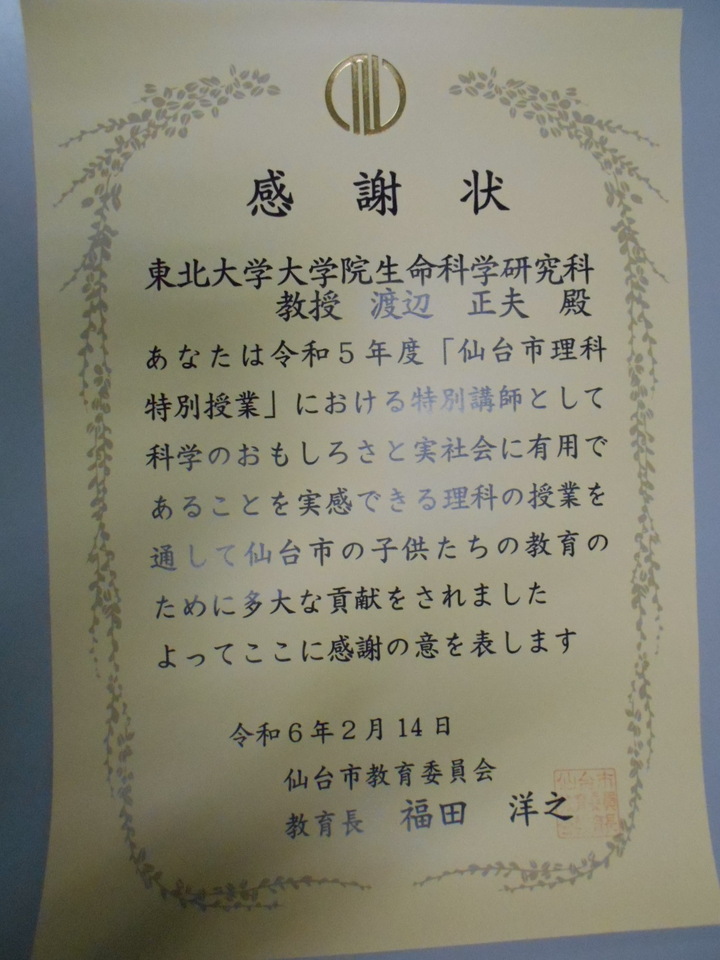 感謝状
東北大学大学院生命科学研究科
教授 渡辺 正夫 殿
あなたは令和5年度「仙台市理科
特別授業」における特別講師として
科学のおもしろさと実社会に有用で
あることを実感できる理科の授業を
通して仙台市の子供たちの教育の
ために多大な貢献をされました
よってここに感謝の意を表します
令和6年2月14日
仙台市教育委員会
教育長 福田 洋之